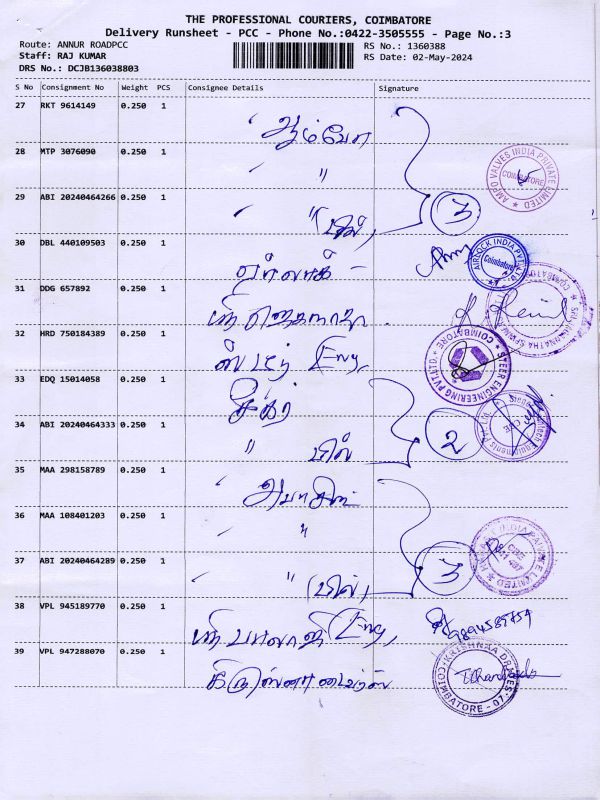 THE PROFESSIONAL COURIERS, COIMBATORE
Delivery Runsheet - PCC - Phone No.:0422-3505555 - Page No.:3
Route: ANNUR ROADPCC
RS No.: 1360388
Staff: RAJ KUMAR
RS Date: 02-May-2024
DRS No.: DCJB136038803
S No Consignment No Weight PCS Consignee Details Signature
27 RKT 9614149 0.250 1
28 MTP 3076090 0.250 1 "
AMPO VALVES INDIA PRIVATE LIMITED COIMBATORE
29 ABI 20240464266 0.250 1 " (பில்) 3
30 DBL 440109503 0.250 1 ஏர்லாக்
AIRLOCK INDIA PVT. Coimbatore
31 DDG 657892 0.250 1 ஸ்ரீ
32 HRD 750184389 0.250 1 ஸ்டீர் Eng,
STEER ENGINEERING PVT.LTD. COIMBATORE
33 EDQ 15014058 0.250 1
34 ABI 20240464333 0.250 1 " பில் 2
35 MAA 298158789 0.250 1
36 MAA 108401203 0.250 1 "
37 ABI 20240464289 0.250 1 " (பில்) 3
INDIA PRIVATE LIMITED
38 VPL 945189770 0.250 1 ஸ்ரீ பாலாஜி Eng,
39 VPL 947288070 0.250 1 கிருஷ்ணா டைமர்ஸ்
KRISHNAA COIMBATORE - 07.